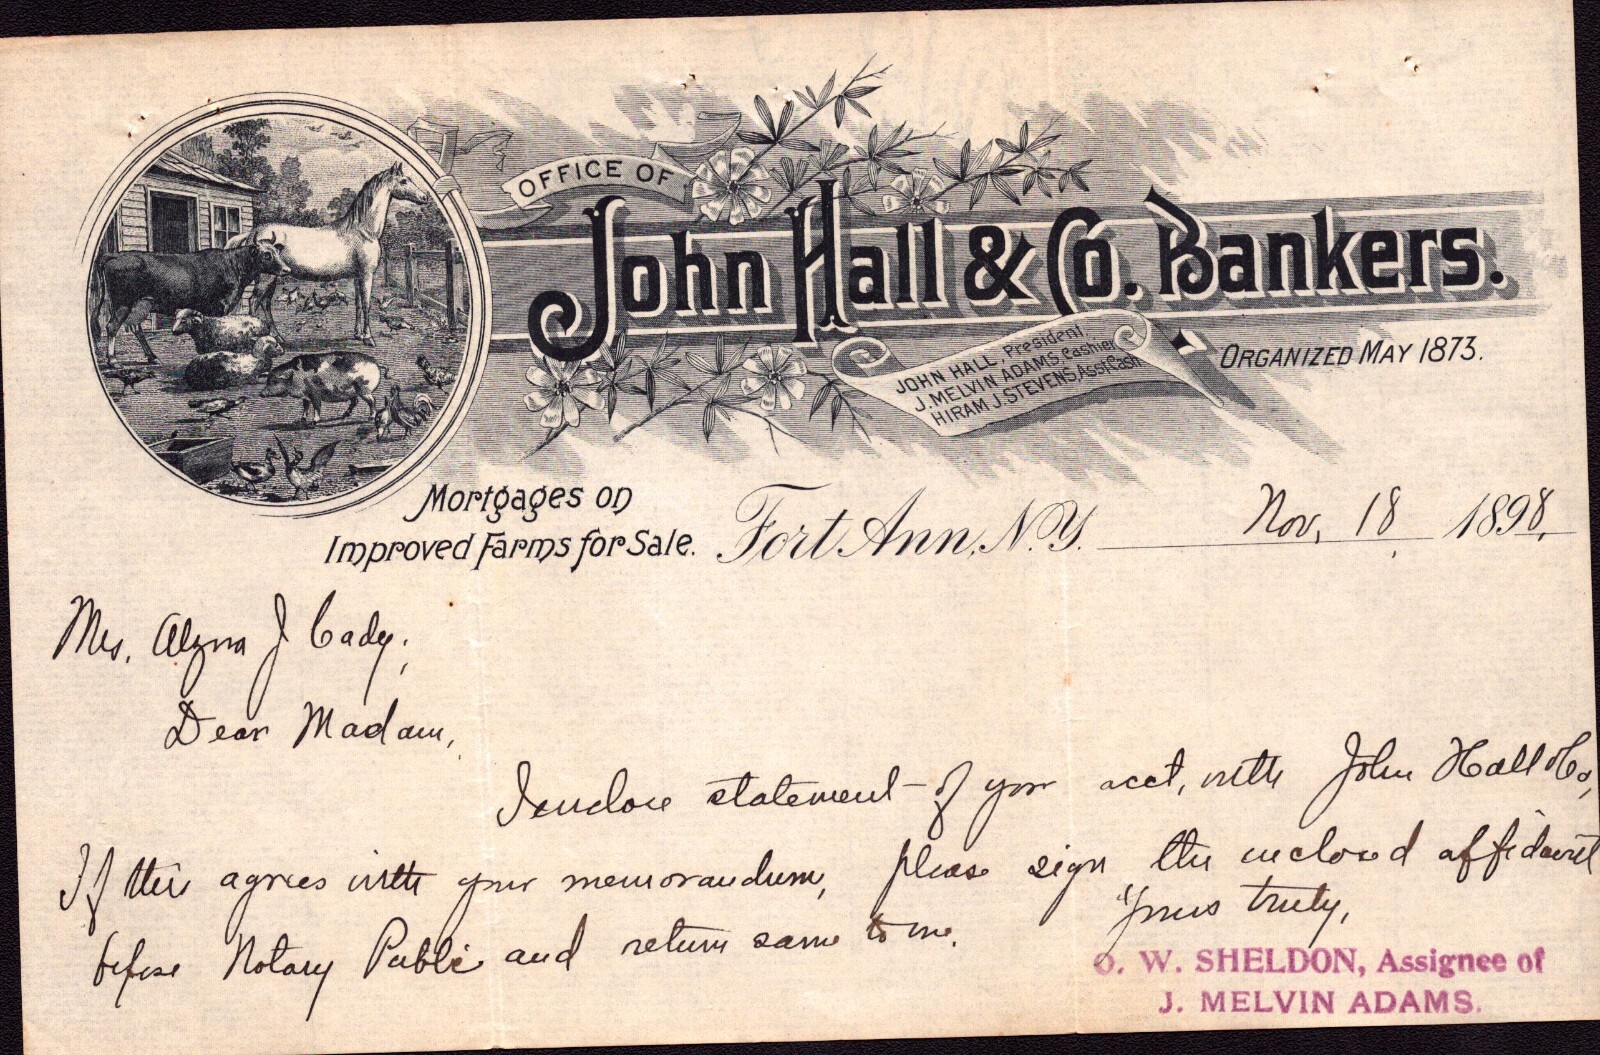 OFFICE OF
John Hall & Co. Bankers.
JOHN HALL, President
J. MELVIN ADAMS, Cashier
HIRAM J. STEVENS, Ass't Cash
ORGANIZED MAY 1873.
Mortgages on
Improved Farms for Sale.
Fort Ann, N.Y. Nov. 18 1898.
Mrs. J Cady,
Dear Madam,
I enclose statement of your acct, with John Hall & Co,
If this agrees with your memorandum, please sign the inclosed affidavit
before Notary Public and return same to me.
Yours truly,
O. W. SHELDON, Assignee of
J. MELVIN ADAMS.